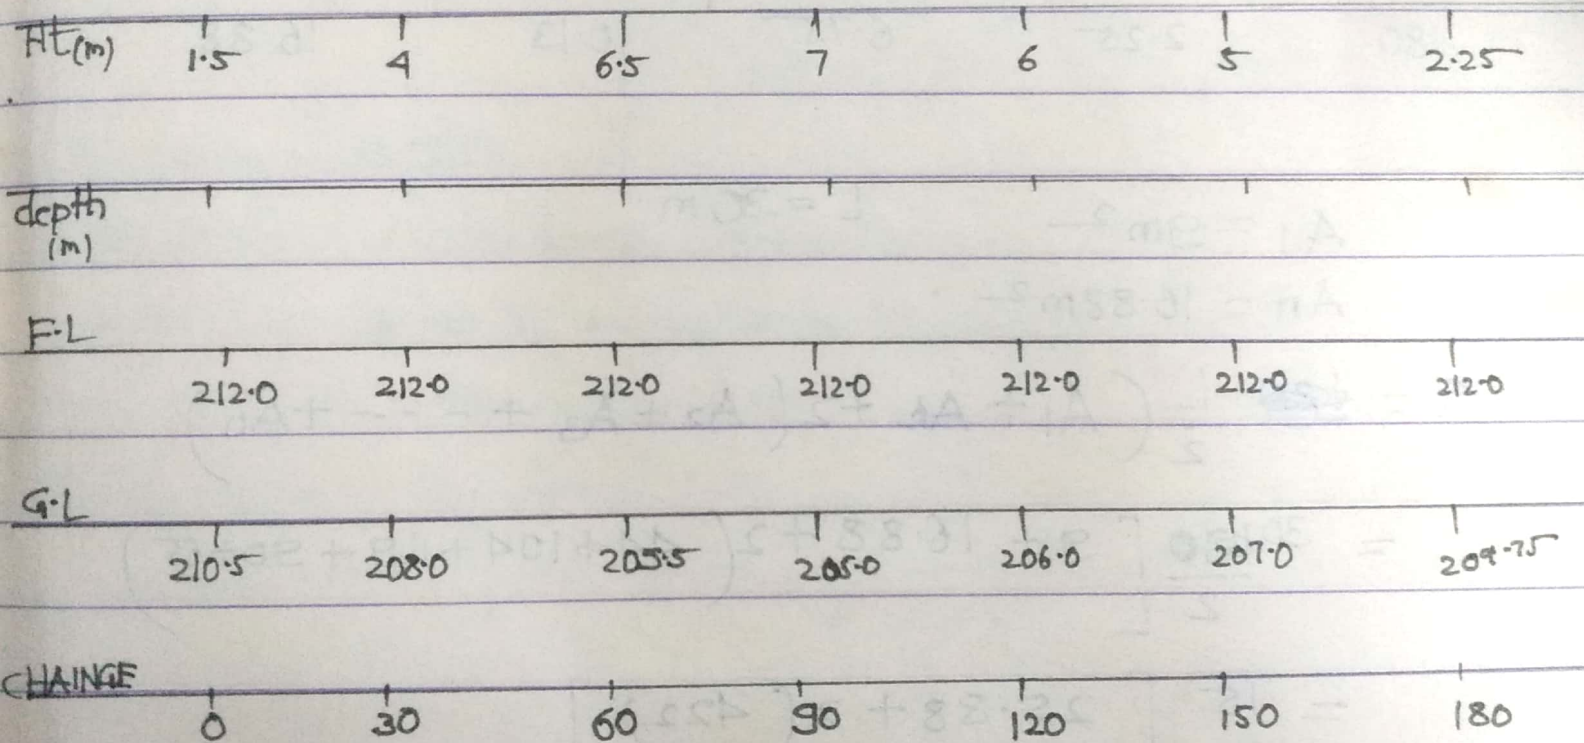 Ht(m) 1.5 4 6.5 7 6 5 2.25
depth
(m)
F.L
212.0 212.0 212.0 212.0 212.0 212.0 212.0
G.L
210.5 208.0 205.5 205.0 206.0 207.0 209.75
CHAINGE
0 30 60 90 120 150 180